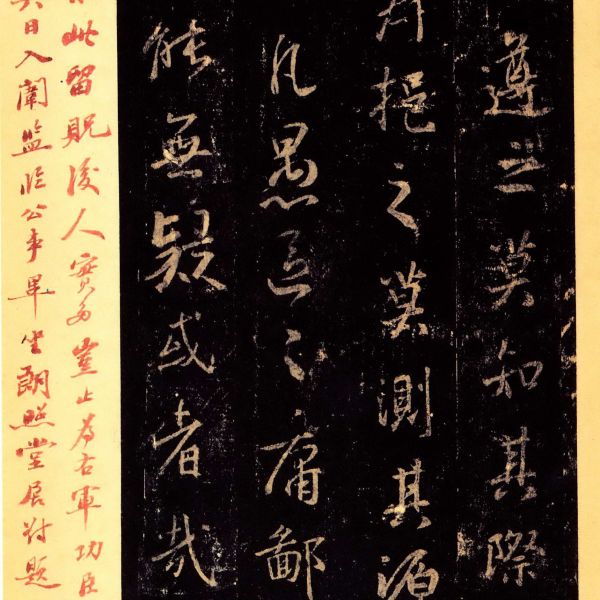 遵之莫知其際
挹之莫測其源
凡愚區々庸鄙
能無疑或者哉
此留貺後人實多豈止為右軍功臣
日入闈監臨公事畢坐朗照堂展對題